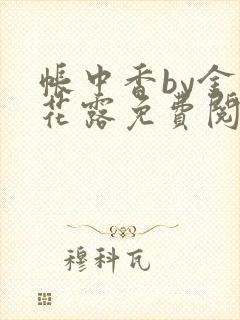 帐中香by金
花露免費閱
穆科瓦